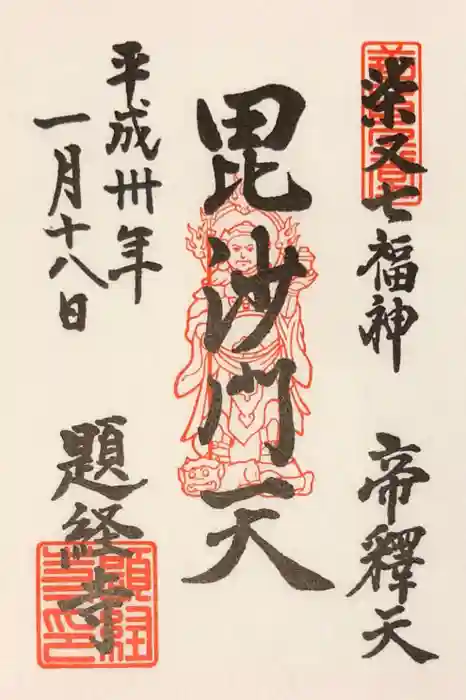 柴又七福神 帝釋天
毘沙門天
平成卅年
一月十八日
題経寺